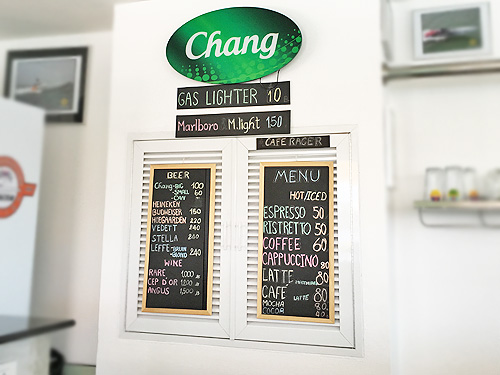 Chang
GAS LIGHTER 10
Marlboro M.light 150
CAFE RACER
BEER
Chang-BIG 100
SMALL 60
HEINEKEN 80
BUDWEISER 150
HOEGAARDEN 220
VEDETT 240
STELLA 240
LEFFE-BRUIN 240
-BLOND
WINE
RARE 1,000
CEP D'OR 1,200
ANGUS 1,500
MENU
HOT/ICED
ESPRESSO 50
RISTRETTO 50
COFFEE 60
CAPPUCCINO 80
LATTE 80
CAFÉ LATTE 80
MOCHA 80
COCOA 80